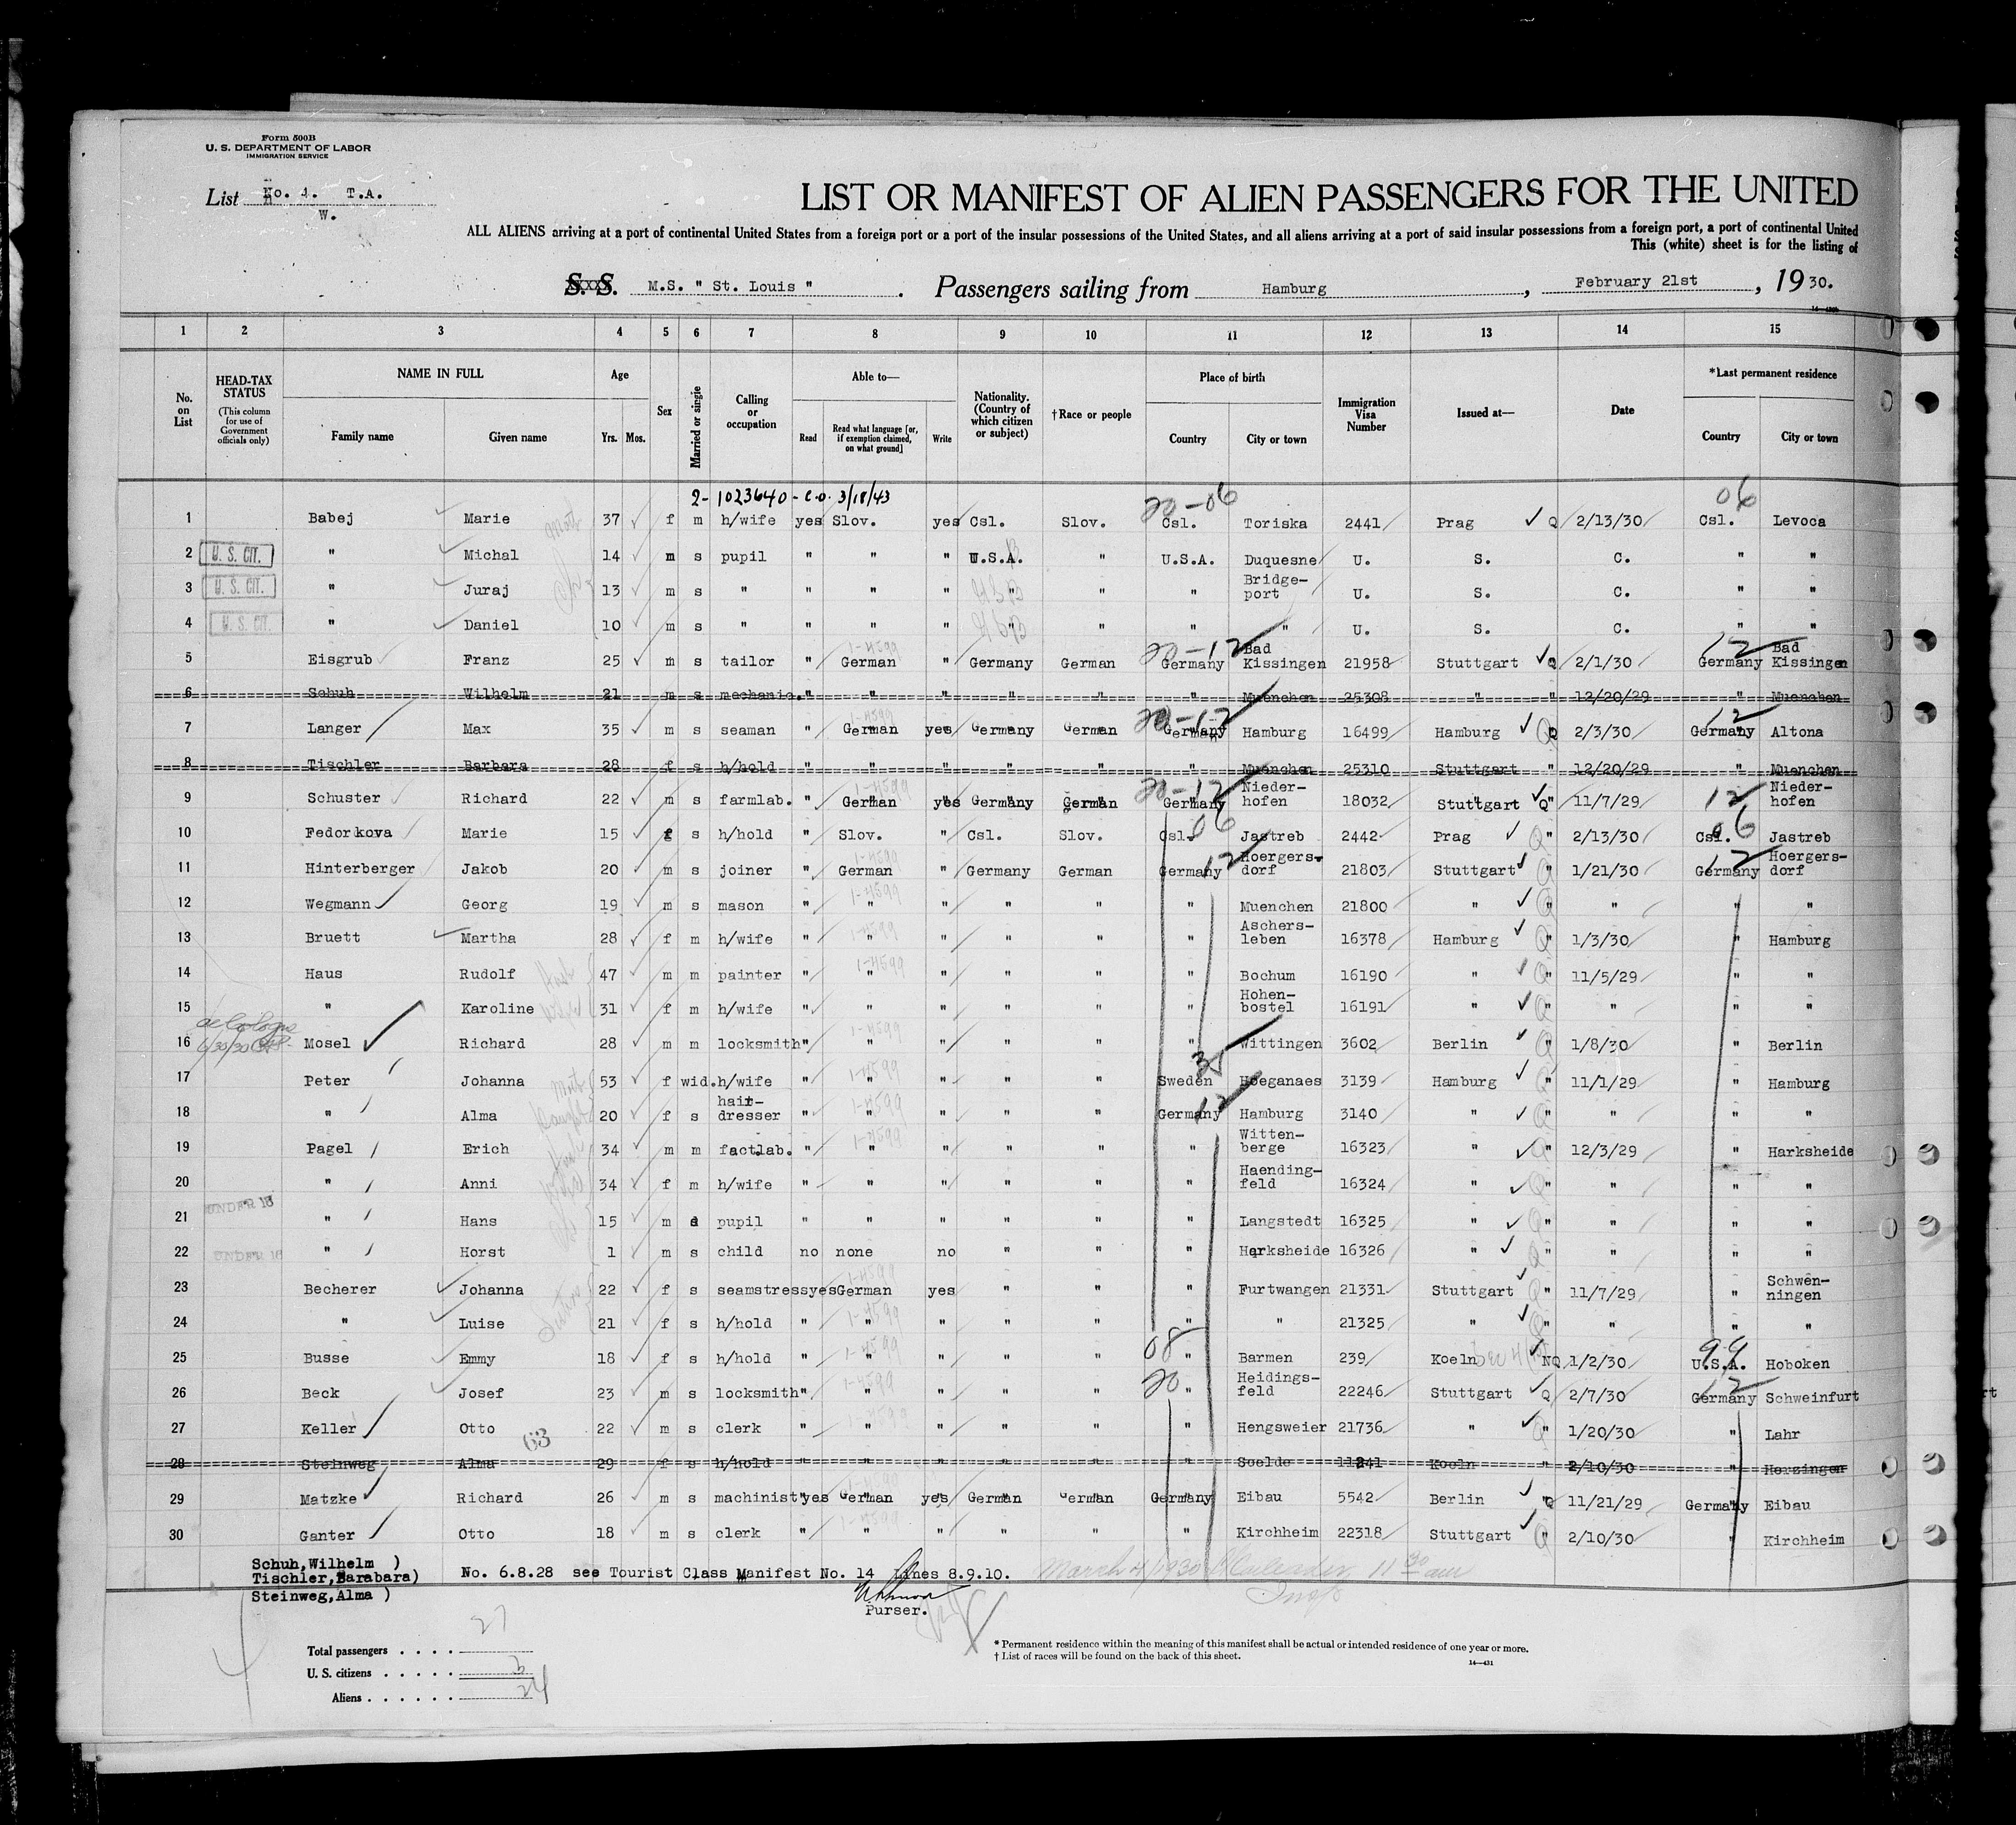 Form 500B
U. S. DEPARTMENT OF LABOR
IMMIGRATION SERVICE
List No. 4. T.A.
W.
LIST OR MANIFEST OF ALIEN PASSENGERS FOR THE UNITED
ALL ALIENS arriving at a port of continental United States from a foreign port or a port of the insular possessions of the United States, and all aliens arriving at a port of said insular possessions from a foreign port, a port of continental United
This (white) sheet is for the listing of
S. S. M.S. " St. Louis " . Passengers sailing from Hamburg , February 21st , 19 30.
1 2 3 4 5 6 7 8 9 10 11 12 13 14 15
No. on List
HEAD-TAX STATUS (This column for use of Government officials only)
NAME IN FULL Family name Given name
Age Yrs. Mos.
Sex
Married or single
Calling or occupation
Able to— Read Read what language [or, if exemption claimed, on what ground] Write
Nationality. (Country of which citizen or subject)
†Race or people
Place of birth Country City or town
Immigration Visa Number
Issued at—
Date
*Last permanent residence Country City or town
2-1023640 - C.O. 3/18/43 20-06 06
1 Babej Marie 37 f m h/wife yes Slov. yes Csl. Slov. Csl. Toriska 2441 Prag Q 2/13/30 Csl. Levoca
2 U. S. CIT. " Michal 14 m s pupil " " " U.S.A. " U.S.A. Duquesne U. S. C. " "
3 U. S. CIT. " Juraj 13 m s " " " " " " " Bridge-port U. S. C. " "
4 U. S. CIT. " Daniel 10 m s " " " " " " " " U. S. C. " "
5 Eisgrub Franz 25 m s tailor " German " Germany German Germany Bad Kissingen 21958 Stuttgart Q 2/1/30 Germany Bad Kissingen
6 Schuh Wilhelm 21 m s mechanic. " " " " " " Muenchen 25308 " " 12/20/29 " Muenchen
7 Langer Max 35 m s seaman " German yes Germany German Germany Hamburg 16499 Hamburg Q 2/3/30 Germany Altona
8 Tischler Barbara 28 f s h/hold " " " " " " Muenchen 25310 Stuttgart " 12/20/29 " Muenchen
9 Schuster Richard 22 m s farmlab. " German yes Germany German Germany Nieder-hofen 18032 Stuttgart Q" 11/7/29 12 Nieder-hofen
10 Fedorkova Marie 15 f s h/hold " Slov. " Csl. Slov. Csl. Jastreb 2442 Prag " 2/13/30 Csl. Jastreb
11 Hinterberger Jakob 20 m s joiner " German " Germany German Germany Hoergers-dorf 21803 Stuttgart " 1/21/30 Germany Hoergers-dorf
12 Wegmann Georg 19 m s mason " " " " " " Muenchen 21800 " " " " "
13 Bruett Martha 28 f m h/wife " " " " " " Aschers-leben 16378 Hamburg " 1/3/30 " Hamburg
14 Haus Rudolf 47 m m painter " " " " " " Bochum 16190 " " 11/5/29 " "
15 " Karoline 31 f m h/wife " " " " " " Hohen-bostel 16191 " " " " "
16 Mosel Richard 28 m m locksmith " " " " " " Wittingen 3602 Berlin " 1/8/30 " Berlin
17 Peter Johanna 53 f wid. h/wife " " " " " Sweden Hoeganaes 3139 Hamburg " 11/1/29 " Hamburg
18 " Alma 20 f s hair-dresser " " " " " Germany Hamburg 3140 " " " " "
19 Pagel Erich 34 m m factlab. " " " " " " Witten-berge 16323 " " 12/3/29 " Harksheide
20 " Anni 34 f m h/wife " " " " " " Haending-feld 16324 " " " " "
21 UNDER 16 " Hans 15 m s pupil " " " " " " Langstedt 16325 " " " " "
22 UNDER 16 " Horst 1 m s child no none no " " " Harksheide 16326 " " " " "
23 Becherer Johanna 22 f s seamstress yes German yes " " " Furtwangen 21331 Stuttgart " 11/7/29 " Schwen-ningen
24 " Luise 21 f s h/hold " " " " " " " 21325 " " " " "
25 Busse Emmy 18 f s h/hold " " " " " " Barmen 239 Koeln NQ 1/2/30 U.S.A. Hoboken
26 Beck Josef 23 m s locksmith " " " " " " Heidings-feld 22246 Stuttgart Q 2/7/30 Germany Schweinfurt
27 Keller Otto 22 m s clerk " " " " " " Hengsweier 21736 " " 1/20/30 " Lahr
28 Steinweg Alma 29 f s h/hold " " " " " " Soelde 11241 Koeln " 2/10/30 " Herzingen
29 Matzke Richard 26 m s machinist yes German yes German German Germany Eibau 5542 Berlin Q 11/21/29 Germany Eibau
30 Ganter Otto 18 m s clerk " " " " " " Kirchheim 22318 Stuttgart " 2/10/30 " Kirchheim
Schuh,Wilhelm )
Tischler,Barabara) No. 6.8.28 see Tourist Class Manifest No. 14 Lines 8.9.10.
Steinweg,Alma )
Purser.
Total passengers . . . . 27
U. S. citizens . . . . . 3
Aliens . . . . . . 24
* Permanent residence within the meaning of this manifest shall be actual or intended residence of one year or more.
† List of races will be found on the back of this sheet.
14—431